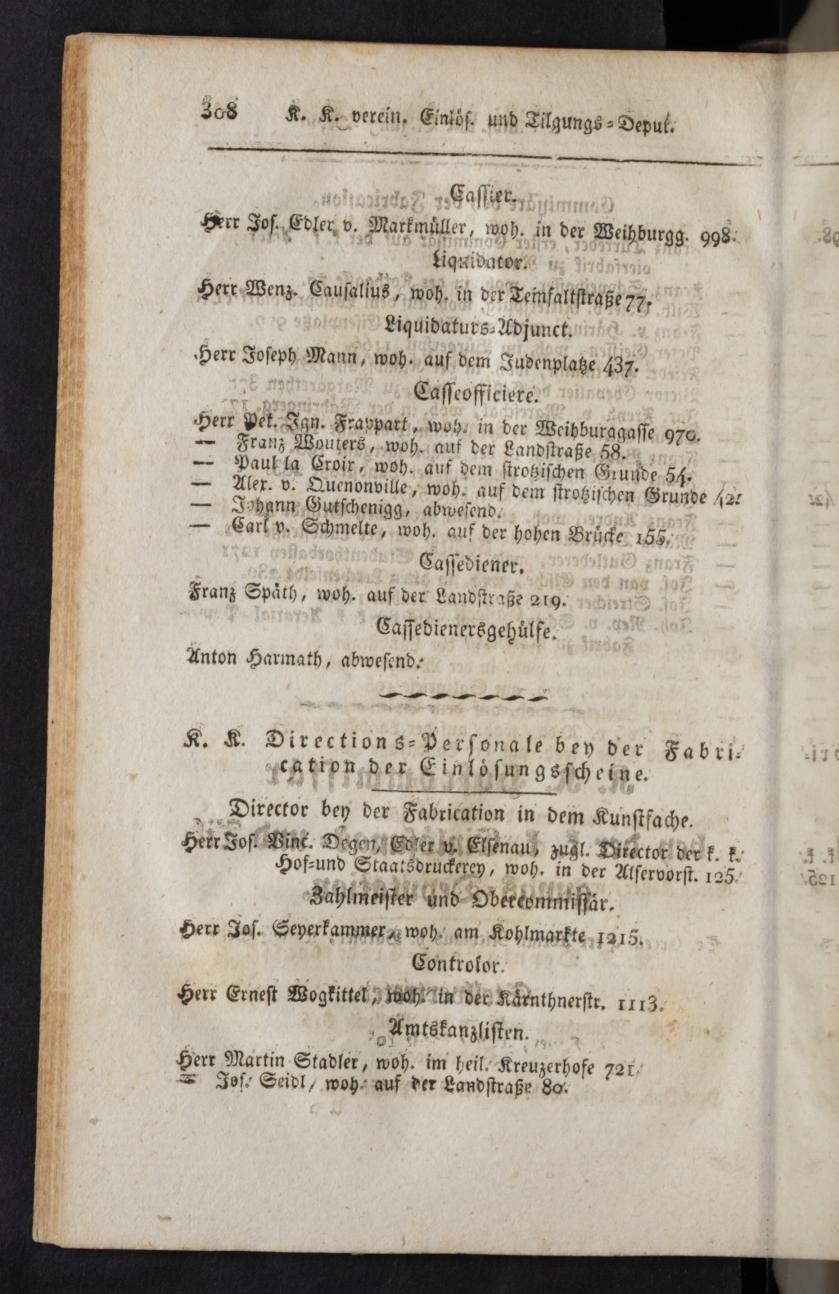 308 K. K. verein. Einlös. und Tilgungs-Deput.
Cassier.
Herr Jos. Edler v. Markmüller, woh. in der Weihburgg. 998.
Liquidator.
Herr Wenz. Causalius, woh. in der Teinfaltstraße 77.
Liquidaturs-Adjunct.
Herr Joseph Mann, woh. auf dem Judenplatze 437.
Casseofficiere.
Herr Pet. Ign. Frappart, woh. in der Weihburggasse 970.
— Franz Wouters, woh. auf der Landstraße 58.
— Paul la Croix, woh. auf dem strotzischen Grunde 54.
— Alex. v. Quenonville, woh. auf dem strotzischen Grunde 42.
— Johann Gutschenigg, abwesend.
— Carl v. Schmelte, woh. auf der hohen Brücke 155.
Cassediener.
Franz Späth, woh. auf der Landstraße 219.
Cassedienersgehülfe.
Anton Harmath, abwesend.
K. K. Directions-Personale bey der Fabri-
cation der Einlösungsscheine.
Director bey der Fabrication in dem Kunstfache.
Herr Jos. Vinc. Degen, Edler v. Elsenau, zugl. Director der k. k.
Hof- und Staatsdruckerey, woh. in der Alservorst. 125.
Zahlmeister und Obercommissär.
Herr Jos. Seyerkammer, woh. am Kohlmarkte 1215.
Controlor.
Herr Ernest Wogkittel, woh. in der Kärnthnerstr. 1113.
Amtskanzlisten.
Herr Martin Stadler, woh. im heil. Kreuzerhofe 721.
— Jos. Seidl, woh. auf der Landstraße 80.